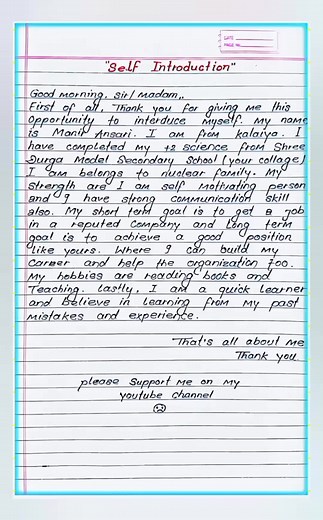 DATE
PAGE NO.
"Self Introduction"
Good morning, sir/madam,,
First of all, Thank you for giving me this
opportunity to interduce myself. my name
is Monir Ansari. I am from kalaiya. I
have completed my +2 science from Shree
Durga Model Secondary School (your collage)
I am belongs to nuclear family. My
strength are I am self motivating person
and I have strong communication skill
also. My short term goal is to get a job
in a reputed company and Long term
goal is to achieve a good position
like yours. Where I can build my
Career and help the organization too.
My hobbies are reading books and
Teaching. lastly, I am a quick learner
and believe in learning from my past
mistakes and experience.
That's all about me
Thank you
please support me on my
youtube channel